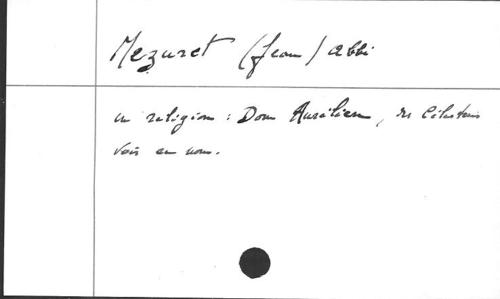 Mezuret (Jean) abbé
en religion : Dom Aurélien, des Célestins
Voir ce nom.